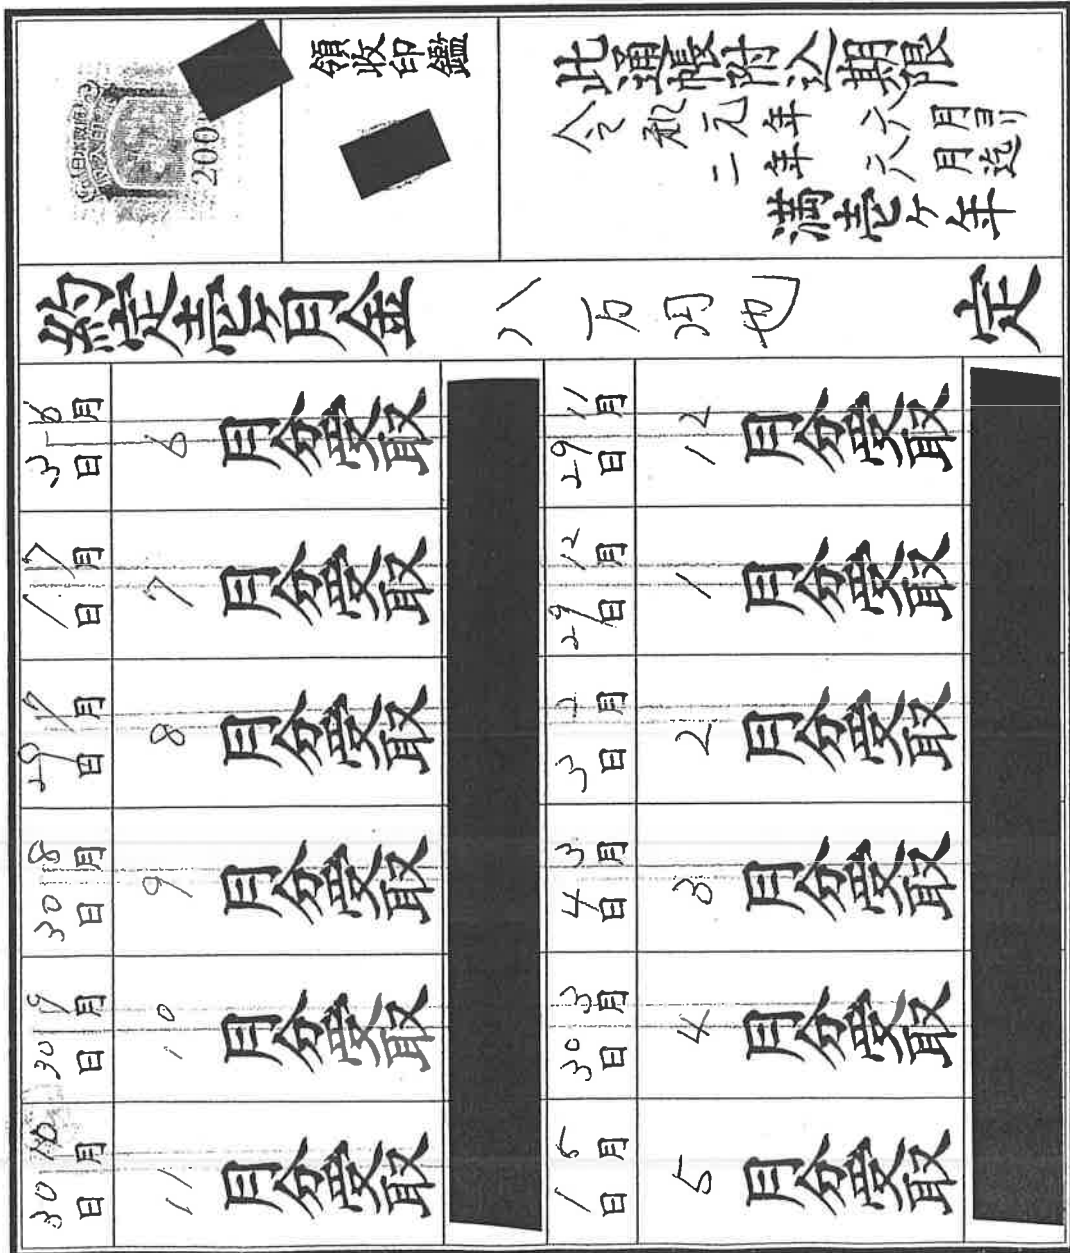 此通帳附込期限
令和元年 六月ヨリ
二年 六月迄
満壱ケ年
領收印鑑
日本政府
200
約定壱ケ月金 八万円也 定
6月3日 6月分受取
7月1日 7月分受取
7月29日 8月分受取
8月30日 9月分受取
9月30日 10月分受取
10月30日 11月分受取
11月29日 12月分受取
12月29日 1月分受取
2月3日 2月分受取
3月4日 3月分受取
3月30日 4月分受取
5月1日 5月分受取